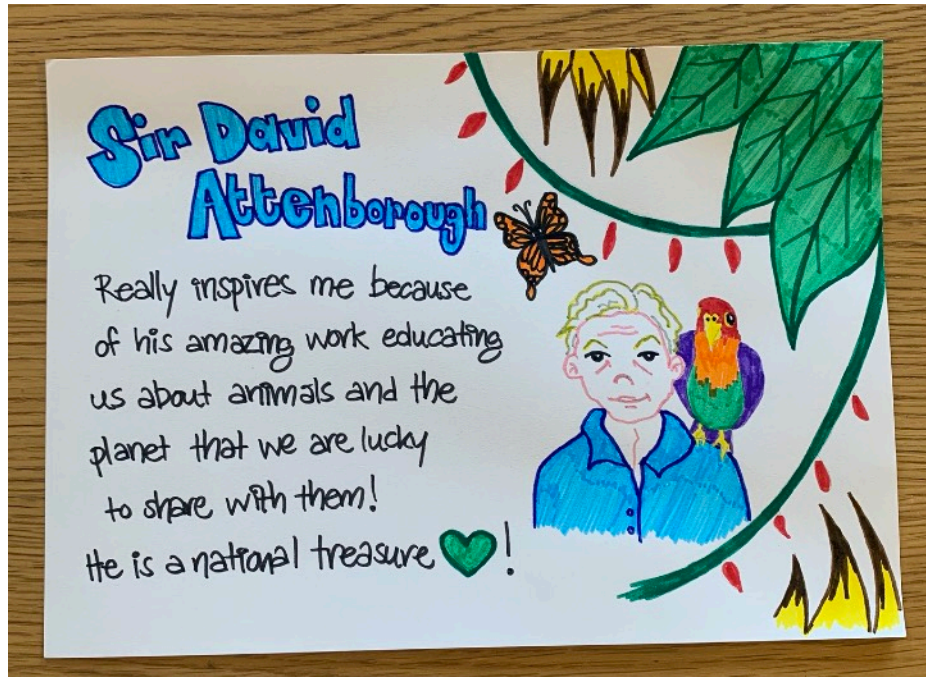 Sir David
Attenborough
Really inspires me because
of his amazing work educating
us about animals and the
planet that we are lucky
to share with them!
He is a national treasure 💚!